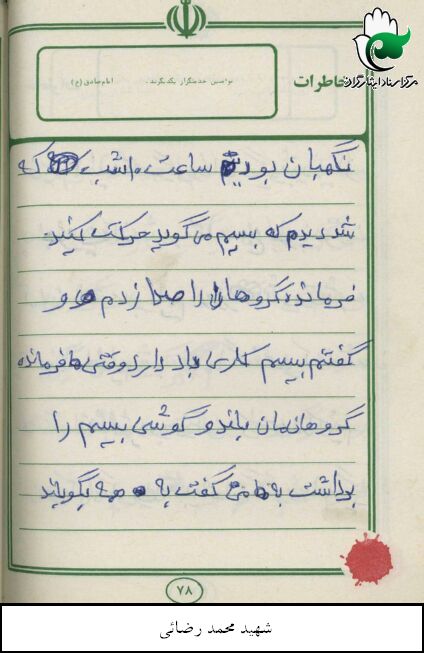 مرکز اسناد ایثارگران
خاطرات
مؤمنین خدمتگزار یکدیگرند. امام صادق (ع)
نگهبان بودیم ساعت ۱۰ شب که
شد دیدم که بیسیم می گوید حرکت کنید
فرمانده گروهان را صدا زدم و
گفتم بیسیم کاری دارد وقتی فرمانده
گروهانمان بلند و گوشی بیسیم را
برداشت به ما می گفت به همه بگویید
۷۸
شهید محمد رضائی